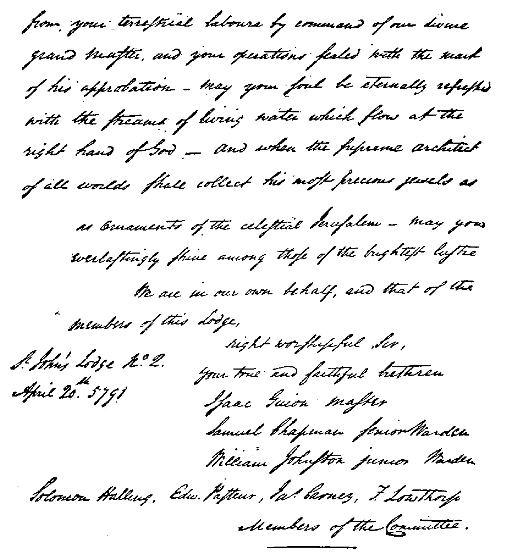 from your terrestrial labours by command of our divine
grand Master, and your operations sealed with the mark
of his approbation – may your soul be eternally refreshed
with the streams of living water which flow at the
right hand of God – and when the supreme architect
of all worlds shall collect his most precious jewels as
as ornaments of the celestial Jerusalem – may you
everlastingly shine among those of the brightest lustre
We are in our own behalf, and that of the
members of this Lodge,
right worshipful Sir,
your true and faithful brethren
St. John's Lodge No. 2.
April 20th. 5791
Isaac Guion master
Samuel Chapman Senior Warden
William Johnston junior Warden
Solomon Halling, Edw. Pasteur, Jas. Carney, F. Lowthorp
Members of the Committee.